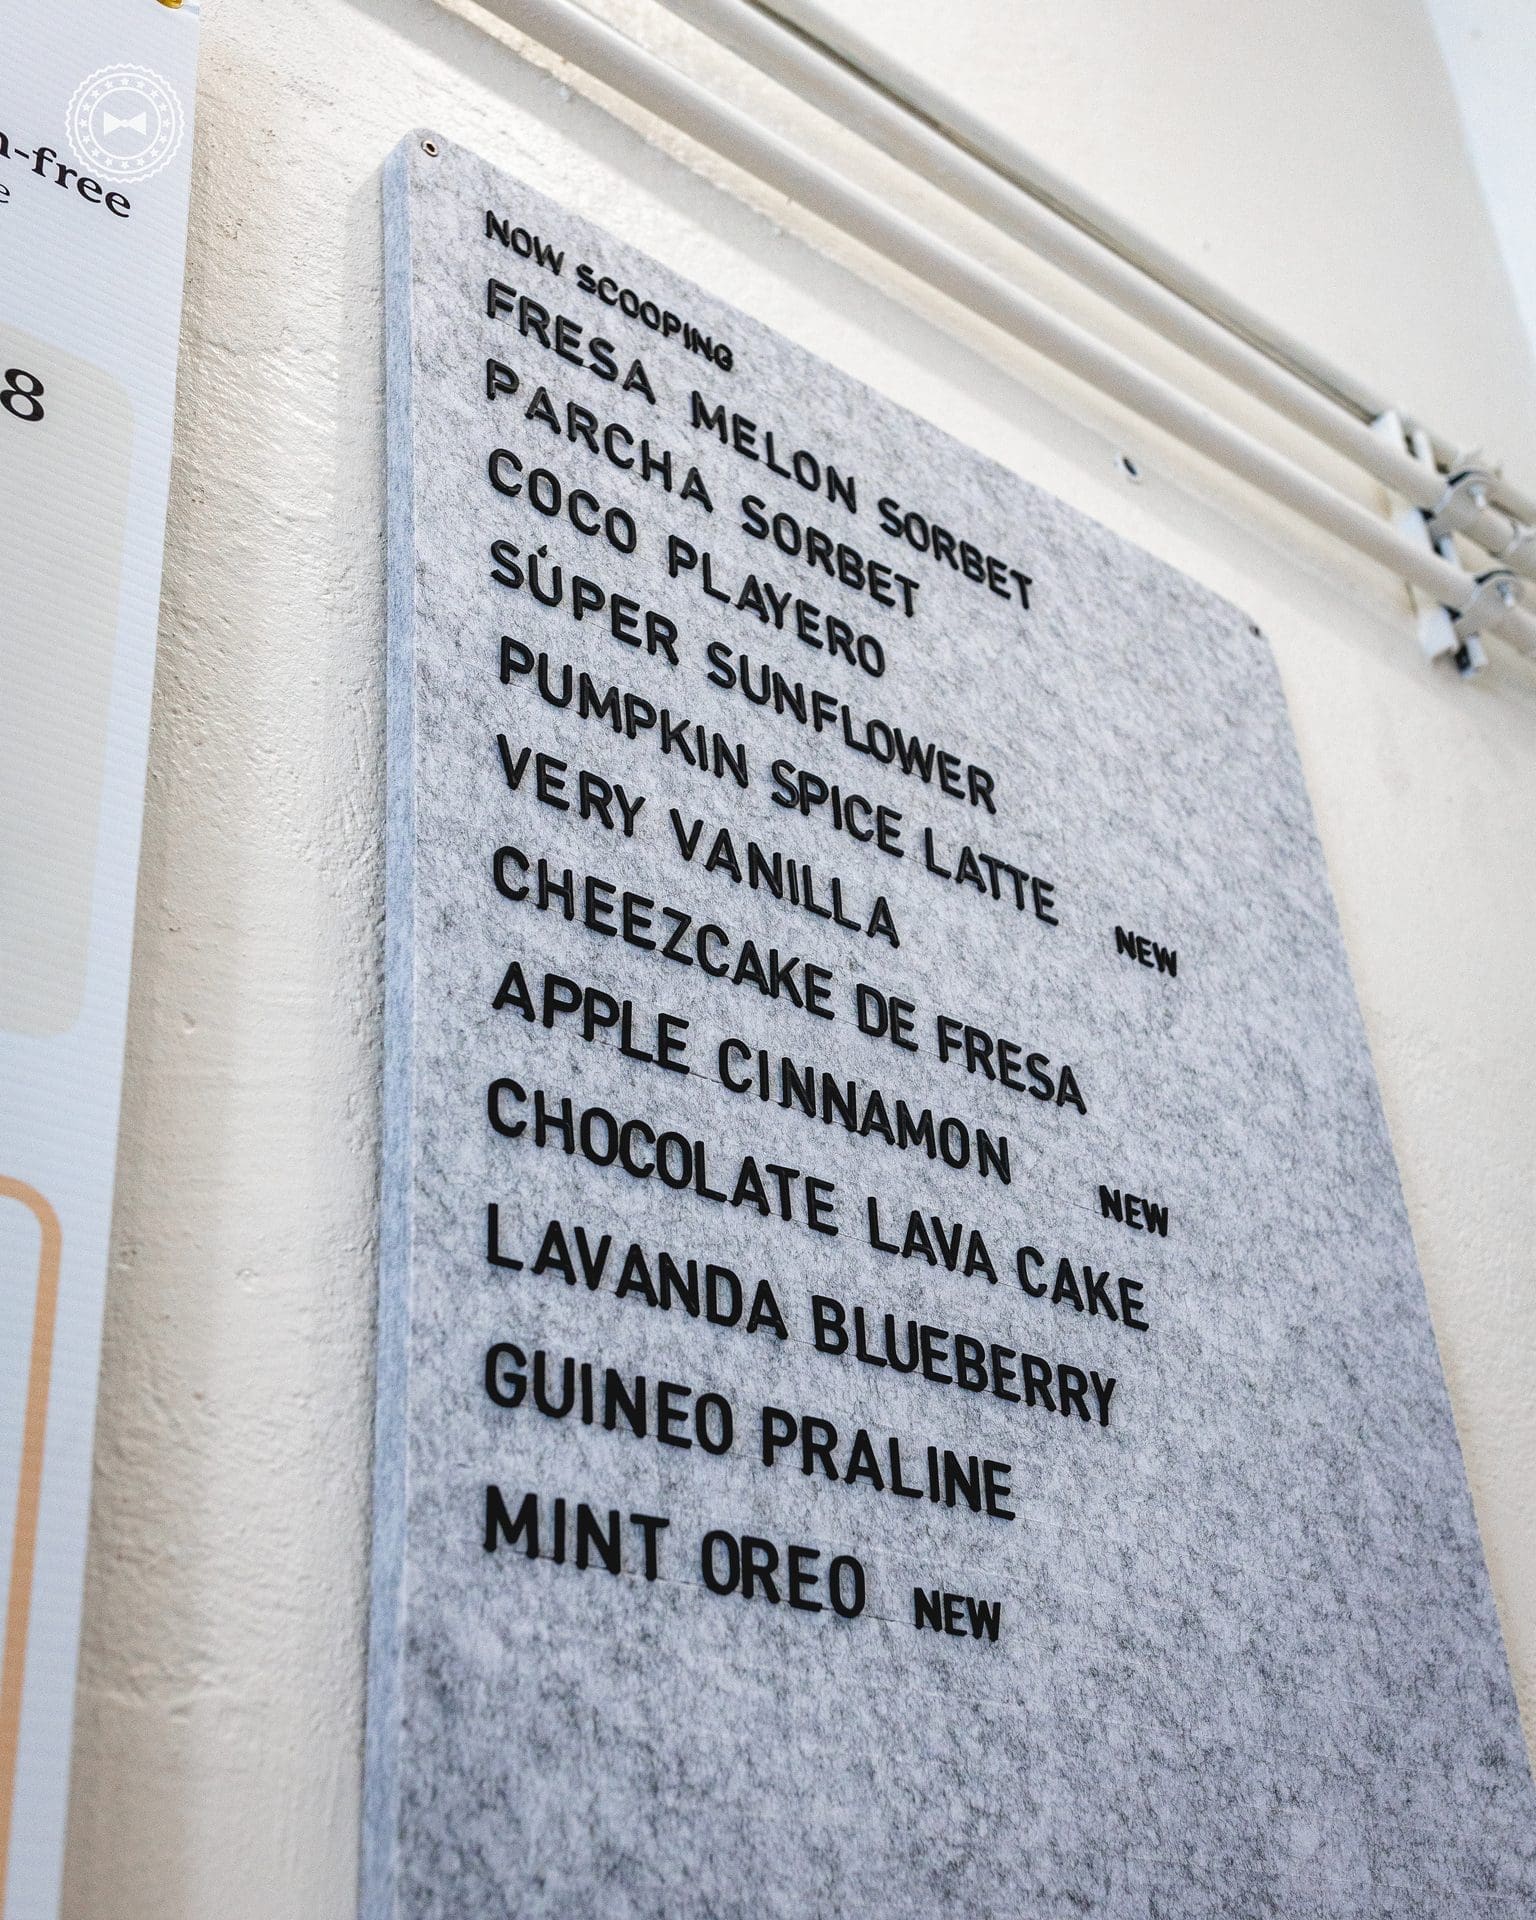 n-free
e
8
NOW SCOOPING
FRESA MELON SORBET
PARCHA SORBET
COCO PLAYERO
SÚPER SUNFLOWER
PUMPKIN SPICE LATTE NEW
VERY VANILLA
CHEEZCAKE DE FRESA
APPLE CINNAMON NEW
CHOCOLATE LAVA CAKE
LAVANDA BLUEBERRY
GUINEO PRALINE
MINT OREO NEW